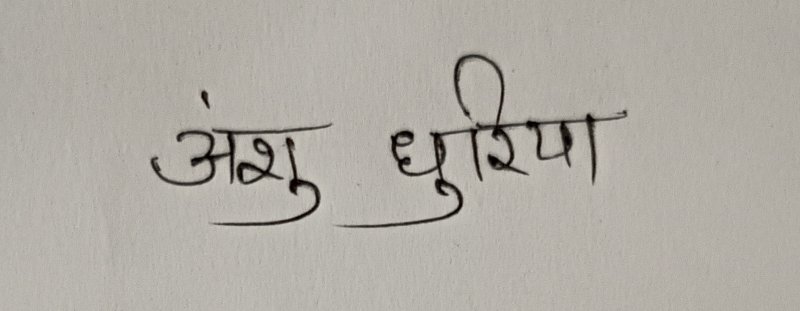 अंशु धुरिया